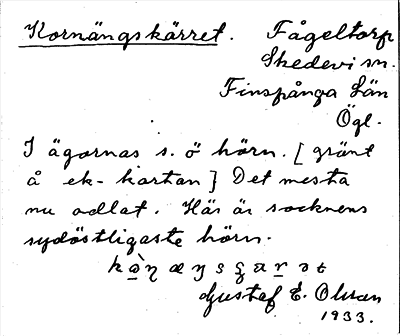 Kornängskärret. Fågeltorp
Skedevi sn.
Finspånga Län
Ögl.
I ägornas s. ö hörn. [grönt
å ek-kartan] Det mesta
nu odlat. Här är socknens
sydöstligaste hörn.
Gustaf E. Olsson
1933.